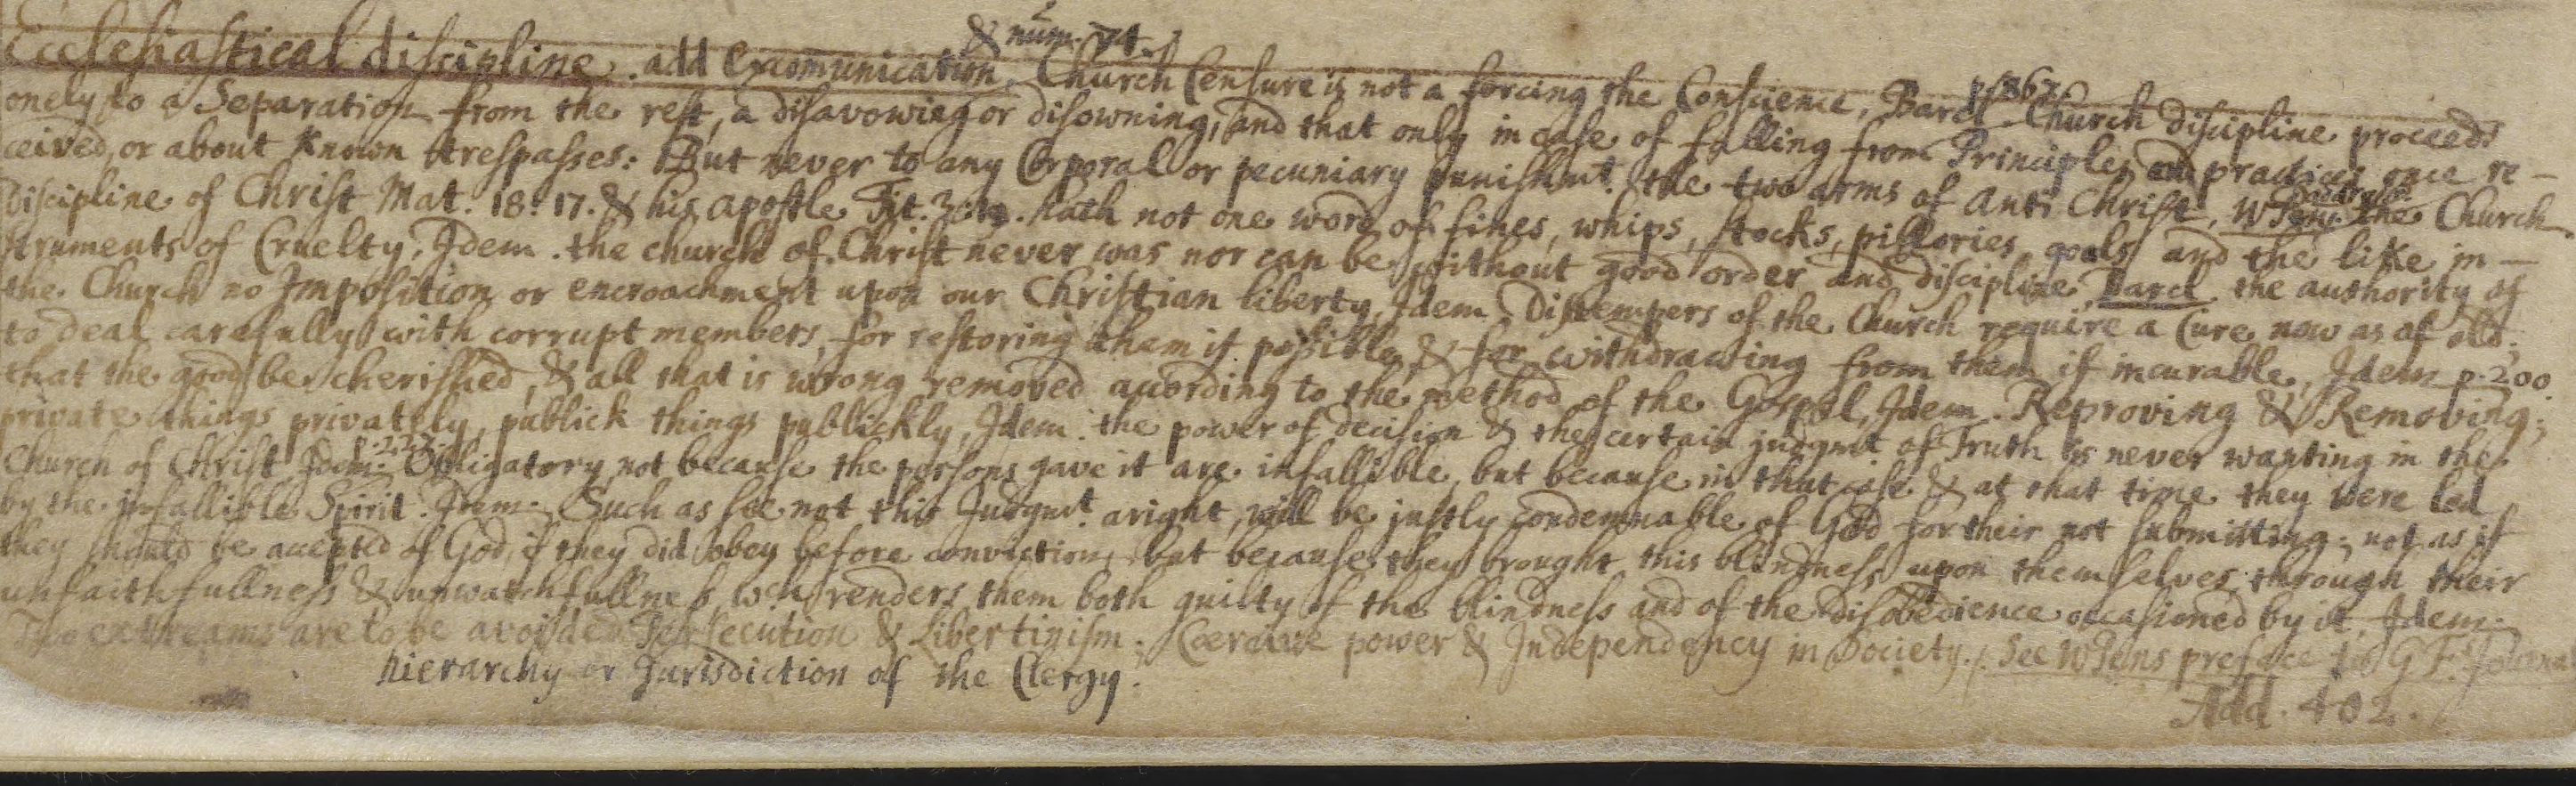 & num. 74.
Ecclesiastical discipline. add Excomunication. Church Censure is not a forcing the Conscience, Barcl. p. 867. Church discipline proceeds
onely to a Separation from the rest, a disavowing or disowning, and that only in case of falling from Principles and practices once re-
ceived, or about known trespasses: But never to any Corporal or pecuniary punishmt. the two arms of Anti Christ, W Penn. the Church
Discipline of Christ Mat. 18. 17. & his apostle Tit. hath not one word of fines, whips, stocks, pillories, goals and the like in-
struments of Cruelty, Idem. the church of Christ never was nor can be without good order and discipline, Barcl. the authority of
the Church no Imposition or encroachment upon our Christian liberty, Idem. Distempers of the Church require a Cure now as of old;
to deal carefully with corrupt members, for restoring them if possible, & for withdrawing from them if incurable, Idem p. 200
that the good be cherished, & all that is wrong removed according to the method of the Gospel, Idem. Reproving & Removing;
private things privately, publick things publickly, Idem. the power of decision & the certain judgmt of Truth is never wanting in the
Church of Christ Idem. p. 222. Obligatory, not because the persons gave it are infallible, but because in that case & at that time they were led
by the infallible Spirit. Idem. Such as see not this Judgmt. aright, will be justly condemnable of God for their not submitting; not as if
they should be accepted of God, if they did obey before conviction, but because they brought this blindness upon themselves through their
unfaithfullness & unwatchfullness, wch renders them both guilty of the blindness and of the disobedience occasioned by it, Idem.
Two extreams are to be avoided Persecution & Libertinism. Coercive power & Independency in Society. See W Pens preface to G F. Journal
hierarchy or Jurisdiction of the Clergy.
Add. 402.